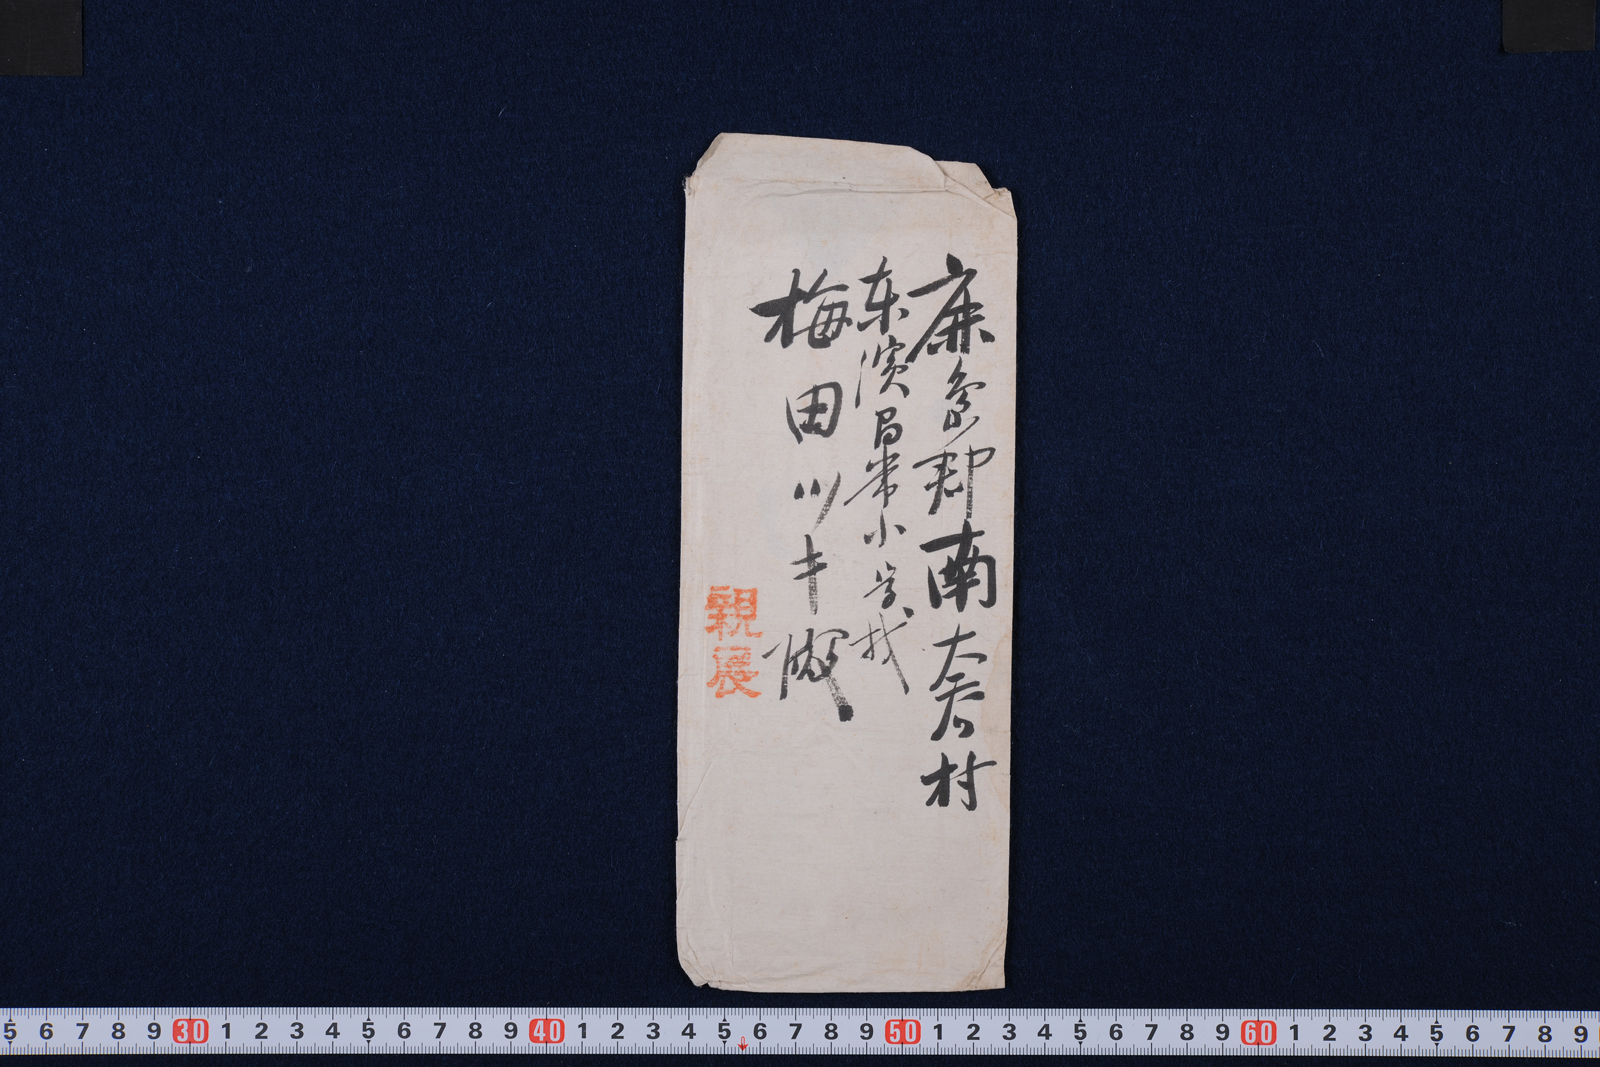 鹿島郡南大呑村
東濱尋常小学校
梅田ツキ殿
親展
5 6 7 8 9 30 1 2 3 4 5 6 7 8 9 40 1 2 3 4 5 6 7 8 9 50 1 2 3 4 5 6 7 8 9 60 1 2 3 4 5 6 7 8 9